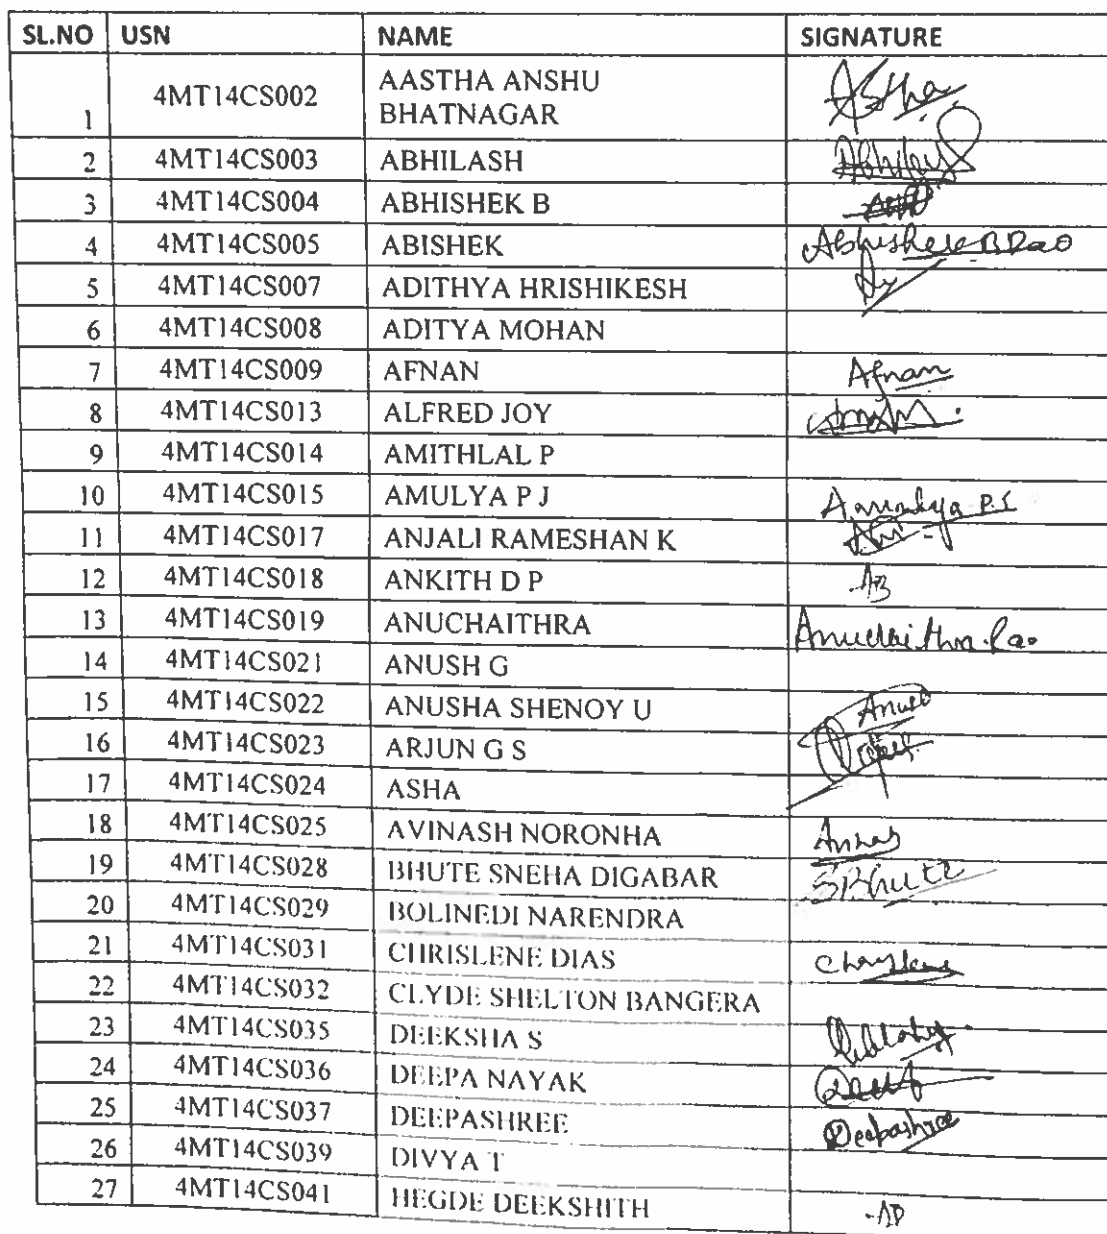 SL.NO USN NAME SIGNATURE
1 4MT14CS002 AASTHA ANSHU
BHATNAGAR
2 4MT14CS003 ABHILASH
3 4MT14CS004 ABHISHEK B
4 4MT14CS005 ABISHEK Abhishek B Rao
5 4MT14CS007 ADITHYA HRISHIKESH
6 4MT14CS008 ADITYA MOHAN
7 4MT14CS009 AFNAN Afnan
8 4MT14CS013 ALFRED JOY
9 4MT14CS014 AMITHLAL P
10 4MT14CS015 AMULYA P J Amulya P.J
11 4MT14CS017 ANJALI RAMESHAN K
12 4MT14CS018 ANKITH D P AB
13 4MT14CS019 ANUCHAITHRA Anuchaithra Rao
14 4MT14CS021 ANUSH G
15 4MT14CS022 ANUSHA SHENOY U
16 4MT14CS023 ARJUN G S
17 4MT14CS024 ASHA
18 4MT14CS025 AVINASH NORONHA
19 4MT14CS028 BHUTE SNEHA DIGABAR SBhute
20 4MT14CS029 BOLINEDI NARENDRA
21 4MT14CS031 CHRISLENE DIAS Chrislene
22 4MT14CS032 CLYDE SHELTON BANGERA
23 4MT14CS035 DEEKSHA S
24 4MT14CS036 DEEPA NAYAK
25 4MT14CS037 DEEPASHREE Deepashree
26 4MT14CS039 DIVYA T
27 4MT14CS041 HEGDE DEEKSHITH